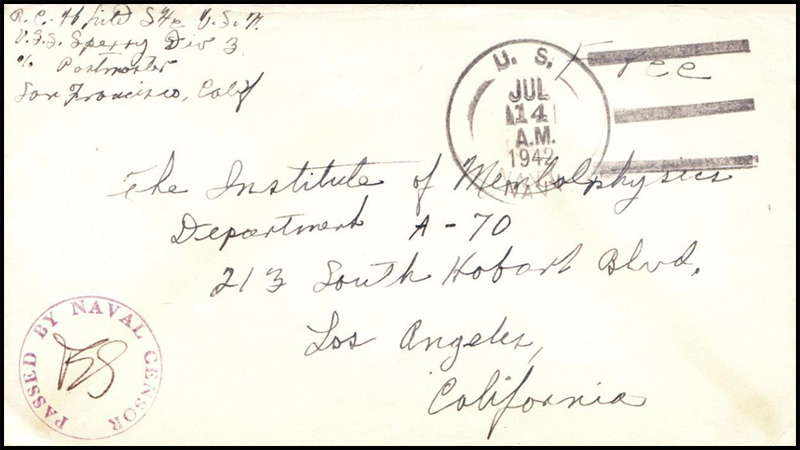 R.C. S1/c U.S.N.
U.S.S. Sperry Div 3
% Postmaster
San Francisco, Calif
Free
U. S.
JUL
14
A.M.
1942
NAVY
The Institute of Mentalphysics
Department A-70
213 South Hobart Blvd.
Los Angeles,
California
PASSED BY NAVAL CENSOR